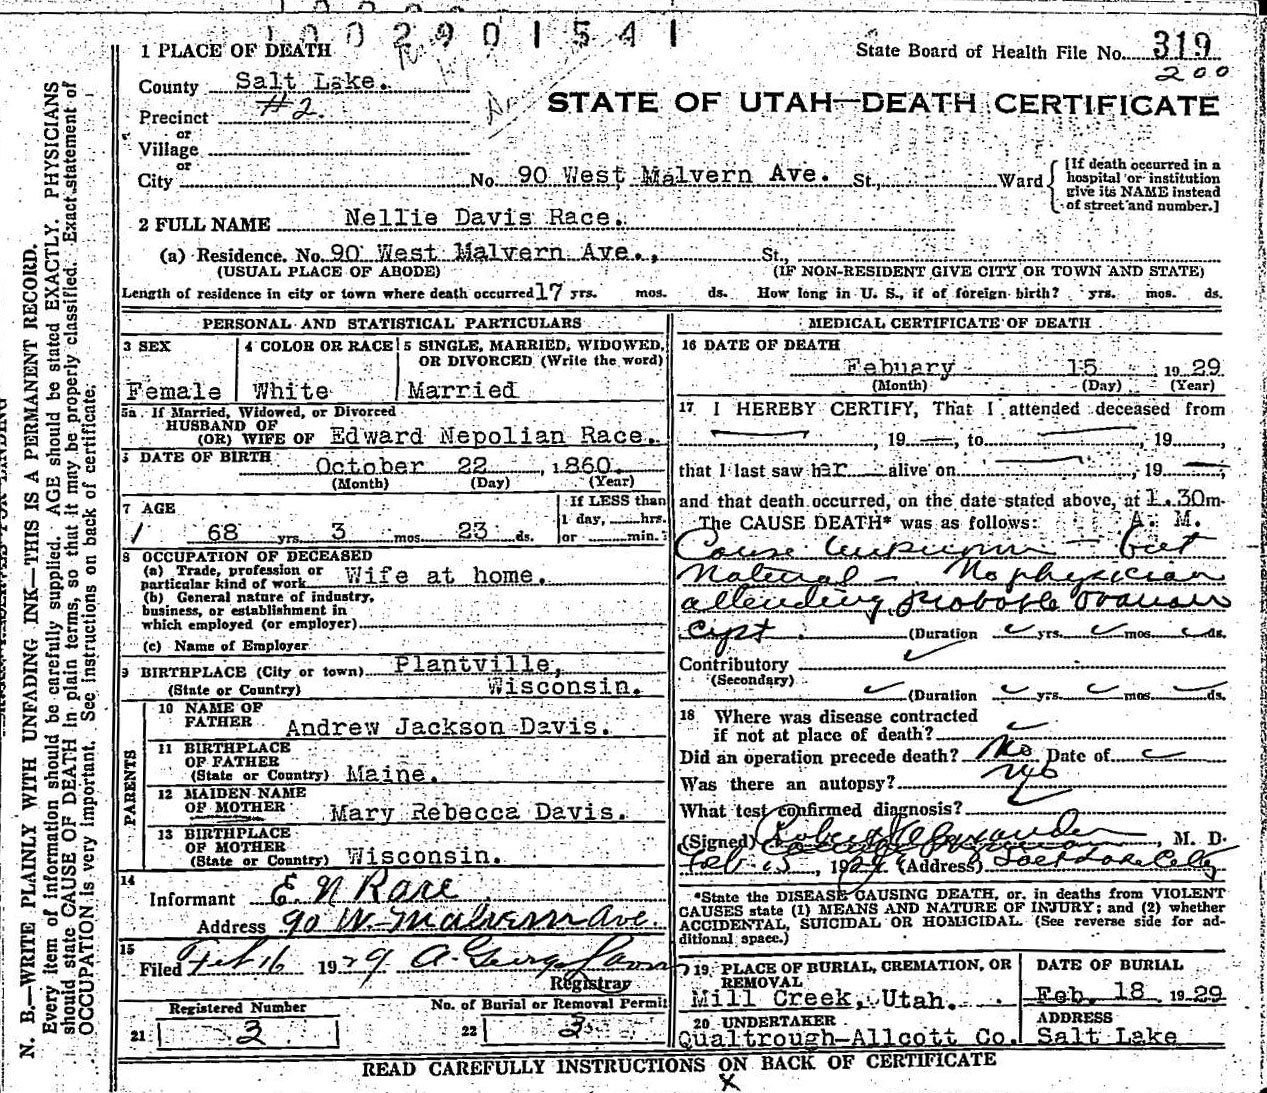 1002901541
1 PLACE OF DEATH
State Board of Health File No. 319
200
County Salt Lake.
STATE OF UTAH—DEATH CERTIFICATE
Precinct #2.
or
Village
or
City No. 90 West Malvern Ave. St., Ward
[If death occurred in a
hospital or institution
give its NAME instead
of street and number.]
2 FULL NAME Nellie Davis Race.
(a) Residence. No. 90 West Malvern Ave., St.,
(USUAL PLACE OF ABODE) (IF NON-RESIDENT GIVE CITY OR TOWN AND STATE)
Length of residence in city or town where death occurred 17 yrs. mos. ds. How long in U. S., if of foreign birth? yrs. mos. ds.
PERSONAL AND STATISTICAL PARTICULARS
3 SEX
Female
4 COLOR OR RACE
White
5 SINGLE, MARRIED, WIDOWED,
OR DIVORCED (Write the word)
Married
5a If Married, Widowed, or Divorced
HUSBAND OF
(OR) WIFE OF Edward Nepolian Race.
DATE OF BIRTH
October 22, 1860.
(Month) (Day) (Year)
7 AGE
68 yrs. 3 mos. 23 ds.
If LESS than
1 day, hrs.
or min.
8 OCCUPATION OF DECEASED
(a) Trade, profession or
particular kind of work Wife at home.
(b) General nature of industry,
business, or establishment in
which employed (or employer)
(c) Name of Employer
9 BIRTHPLACE (City or town) Plantville,
(State or Country) Wisconsin.
PARENTS
10 NAME OF
FATHER Andrew Jackson Davis.
11 BIRTHPLACE
OF FATHER
(State or Country) Maine.
12 MAIDEN NAME
OF MOTHER Mary Rebecca Davis.
13 BIRTHPLACE
OF MOTHER
(State or Country) Wisconsin.
14
Informant E N Race
Address 90 W. Malvern Ave.
15
Filed Feb 16 1929 A. George
Registrar
Registered Number
21 3
No. of Burial or Removal Permit
22 3
MEDICAL CERTIFICATE OF DEATH
16 DATE OF DEATH
Febuary 15, 1929
(Month) (Day) (Year)
17 I HEREBY CERTIFY, That I attended deceased from
, 19 , to , 19 ,
that I last saw her alive on , 19
and that death occurred, on the date stated above, at 1.30m.
The CAUSE DEATH* was as follows: A. M.
Cause unknown — but
Natural — No physician
attending, probable ovarian
cyst. (Duration yrs. mos. ds.
Contributory
(Secondary)
(Duration yrs. mos. ds.
18 Where was disease contracted
if not at place of death?
Did an operation precede death? No Date of
Was there an autopsy? No
What test confirmed diagnosis?
(Signed) Robert Alexander, M. D.
Feb 15, 1929 (Address) Salt Lake City
*State the DISEASE CAUSING DEATH, or, in deaths from VIOLENT
CAUSES state (1) MEANS AND NATURE OF INJURY; and (2) whether
ACCIDENTAL, SUICIDAL OR HOMICIDAL. (See reverse side for ad-
ditional space.)
19 PLACE OF BURIAL, CREMATION, OR
REMOVAL
Mill Creek, Utah.
DATE OF BURIAL
Feb. 18 1929
20 UNDERTAKER
Qualtrough-Allcott Co.
ADDRESS
Salt Lake
READ CAREFULLY INSTRUCTIONS ON BACK OF CERTIFICATE
X
N. B.—WRITE PLAINLY WITH UNFADING INK—THIS IS A PERMANENT RECORD.
Every item of information should be carefully supplied. AGE should be stated EXACTLY. PHYSICIANS
should state CAUSE OF DEATH in plain terms, so that it may be properly classified. Exact statement of
OCCUPATION is very important. See instructions on back of certificate.